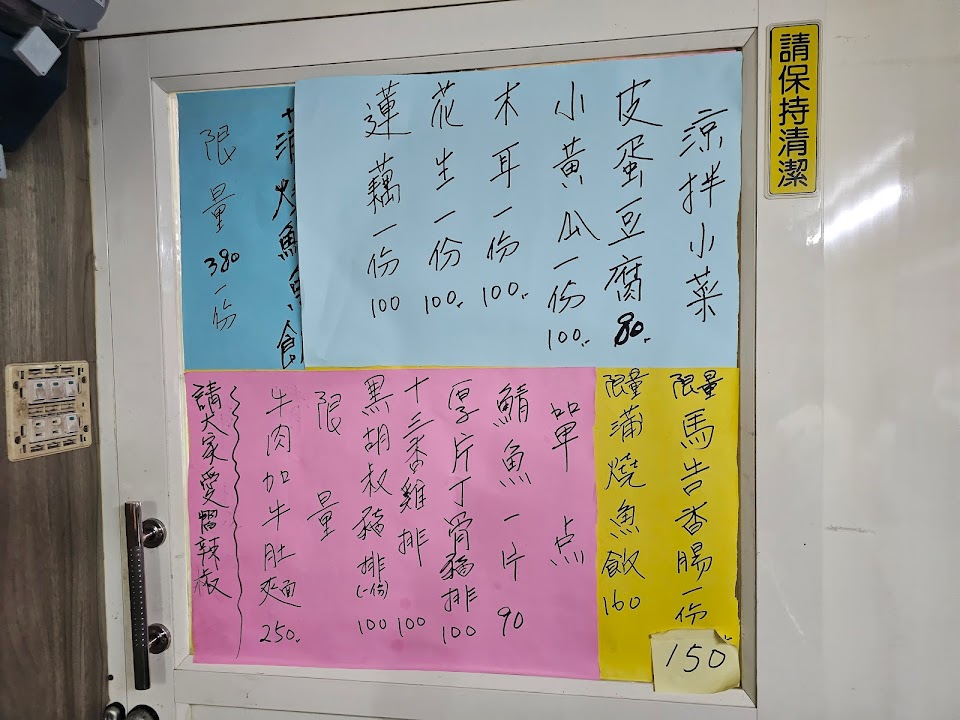 請保持清潔
涼拌小菜
皮蛋豆腐 80.
小黃瓜一份 100.
木耳一份 100.
花生一份 100.
蓮藕一份 100
限量 380 一份
限量 馬告香腸一份 150
限量 蒲燒魚飯 160
單点
鯖魚一片 90
厚片丁骨豬排 100
十三香雞排 100
黑胡叔豬排(一份) 100
限量
牛肉加牛肚麵 250.
請大家愛豐辣椒